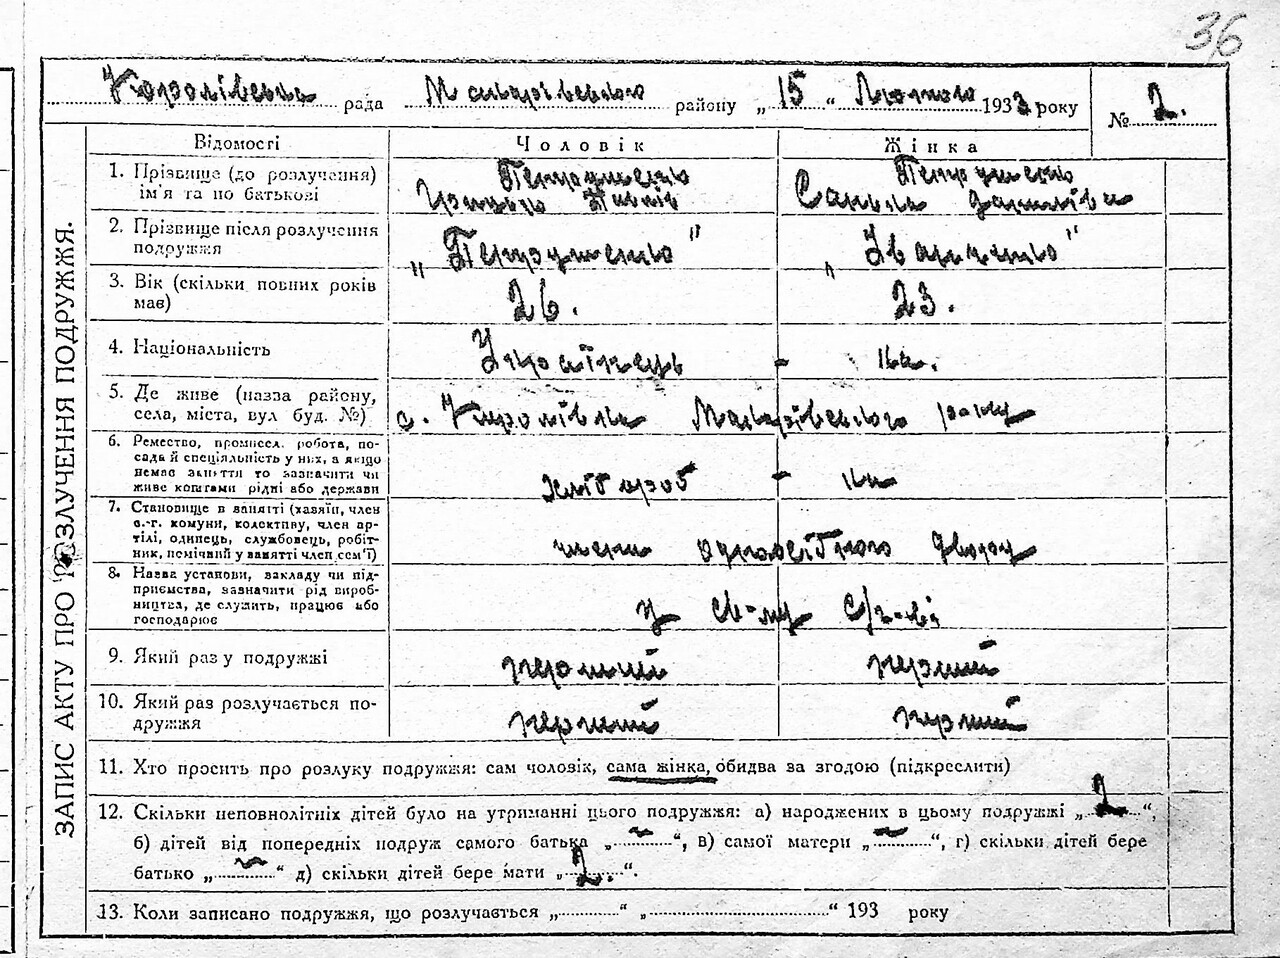 36
Королівська рада Макарівського району „15“ Лютого 1933 року № 2.
Відомості Чоловік Жінка
1. Прізвище (до розлучення) ім'я та по батькові
Петрушенко Петрушенко
Павлів
2. Прізвище після розлучення подружжя
„Петрушенко" „Іваненко"
3. Вік (скільки повних років має)
26. 23.
4. Національність
Українець - ка.
5. Де живе (назва району, села, міста, вул буд. №)
с. Королівка Макарівського р-ну
6. Ремество, промисел, робота, по-
сада й спеціяльність у них, а якщо
немає заняття то зазначити чи
живе коштами рідні або держави
хлібороб - ка
7. Становище в занятті (хазяїн, член
с.-г. комуни, колективу, член ар-
тілі, одинець, службовець, робіт-
ник, помічний у занятті член сем'ї)
члени одноосібного двору
8. Назва установи, закладу чи під-
приємства, зазначити рід вироб-
ництва, де служить, працює або
господарює
у св-му с/г-ві
9. Який раз у подружжі
перший перший
10. Який раз розлучається по-
дружжя
перший перший
11. Хто просить про розлуку подружжя: сам чоловік, сама жінка, обидва за згодою (підкреслити)
12. Скільки неповнолітніх дітей було на утриманні цього подружжя: а) народжених в цьому подружжі „2“,
б) дітей від попередніх подруж самого батька „~“, в) самої матери „~“, г) скільки дітей бере
батько „~“ д) скільки дітей бере мати „2.“.
13. Коли записано подружжя, що розлучається „ “ „ “ 193 року
ЗАПИС АКТУ ПРО РОЗЛУЧЕННЯ ПОДРУЖЖЯ.